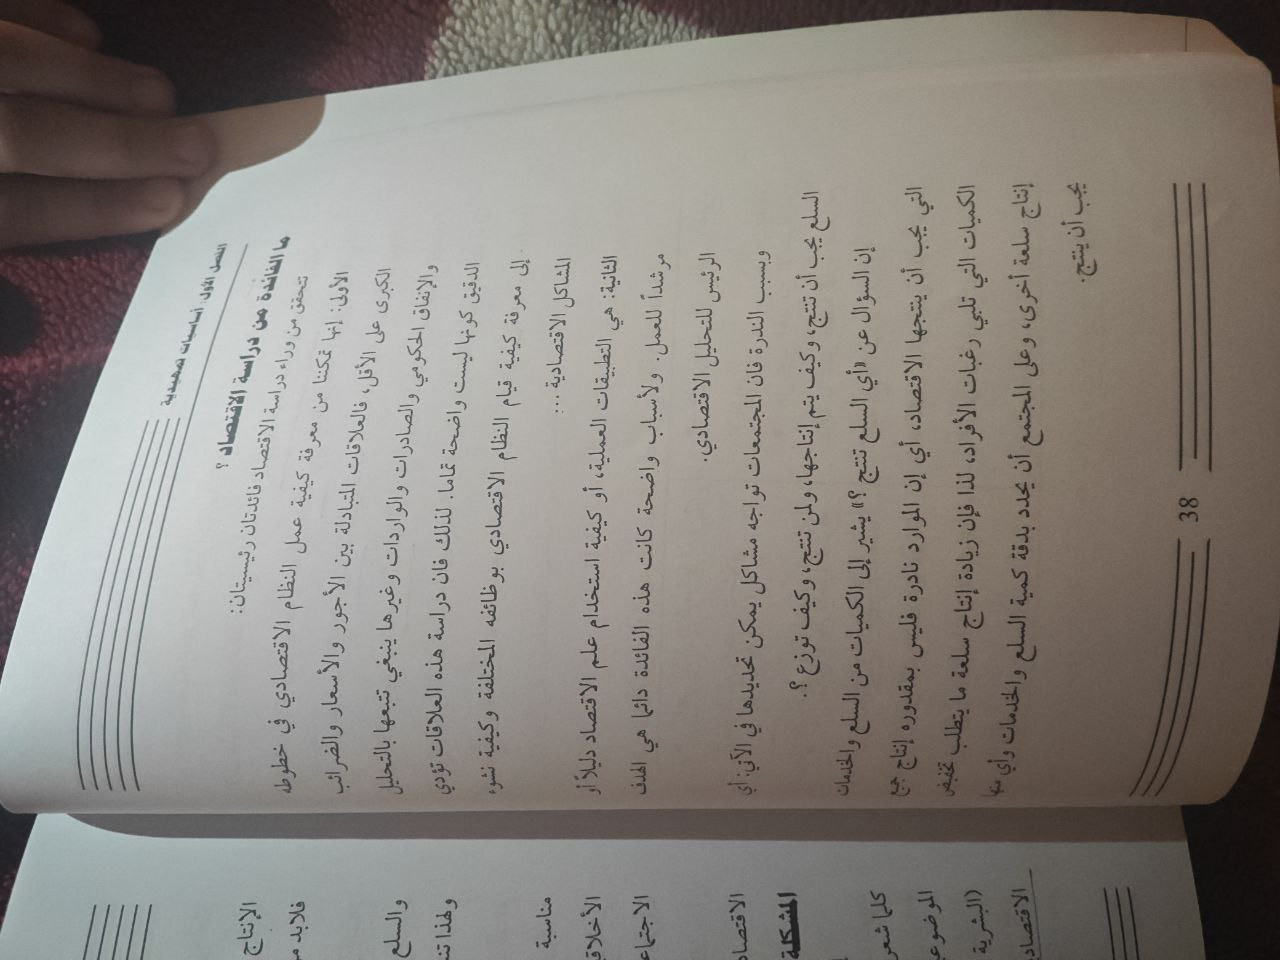 الفصل الأول: أساسيات تمهيدية
ما الفائدة من دراسة الاقتصاد ؟
تتحقق من وراء دراسة الاقتصاد فائدتان رئيسيتان:
الأولى: إنها تمكننا من معرفة كيفية عمل النظام الاقتصادي في خطوطه
الكبرى على الأقل، فالعلاقات المتبادلة بين الأجور والأسعار والضرائب
والإنفاق الحكومي والصادرات والواردات وغيرها ينبغي تتبعها بالتحليل
الدقيق كونها ليست واضحة تماما. لذلك فان دراسة هذه العلاقات تؤدي
إلى معرفة كيفية قيام النظام الاقتصادي بوظائفه المختلفة وكيفية نشوء
المشاكل الاقتصادية ...
الثانية: هي التطبيقات العملية، أو كيفية استخدام علم الاقتصاد دليلاً أو
مرشداً للعمل. ولأسباب واضحة كانت هذه الفائدة دائما هي الهدف
الرئيس للتحليل الاقتصادي.
وبسبب الندرة فان المجتمعات تواجه مشاكل يمكن تحديدها في الآتي: أي
السلع يجب أن تنتج، وكيف يتم إنتاجها، ولمن تنتج، وكيف توزع ؟.
إن السؤال عن «أي السلع تنتج ؟» يشير إلى الكميات من السلع والخدمات
التي يجب أن ينتجها الاقتصاد، أي إن الموارد نادرة فليس بمقدوره إنتاج جميع
الكميات التي تلبي رغبات الأفراد، لذا فإن زيادة إنتاج سلعة ما يتطلب تخفيض
إنتاج سلعة أخرى، وعلى المجتمع أن يحدد بدقة كمية السلع والخدمات وأي منها
يجب أن ينتج.
38
الإنتاج
فلابد
والسلع
ولهذا
مناسبة
المشكلة
كلما شعر
(البشرية